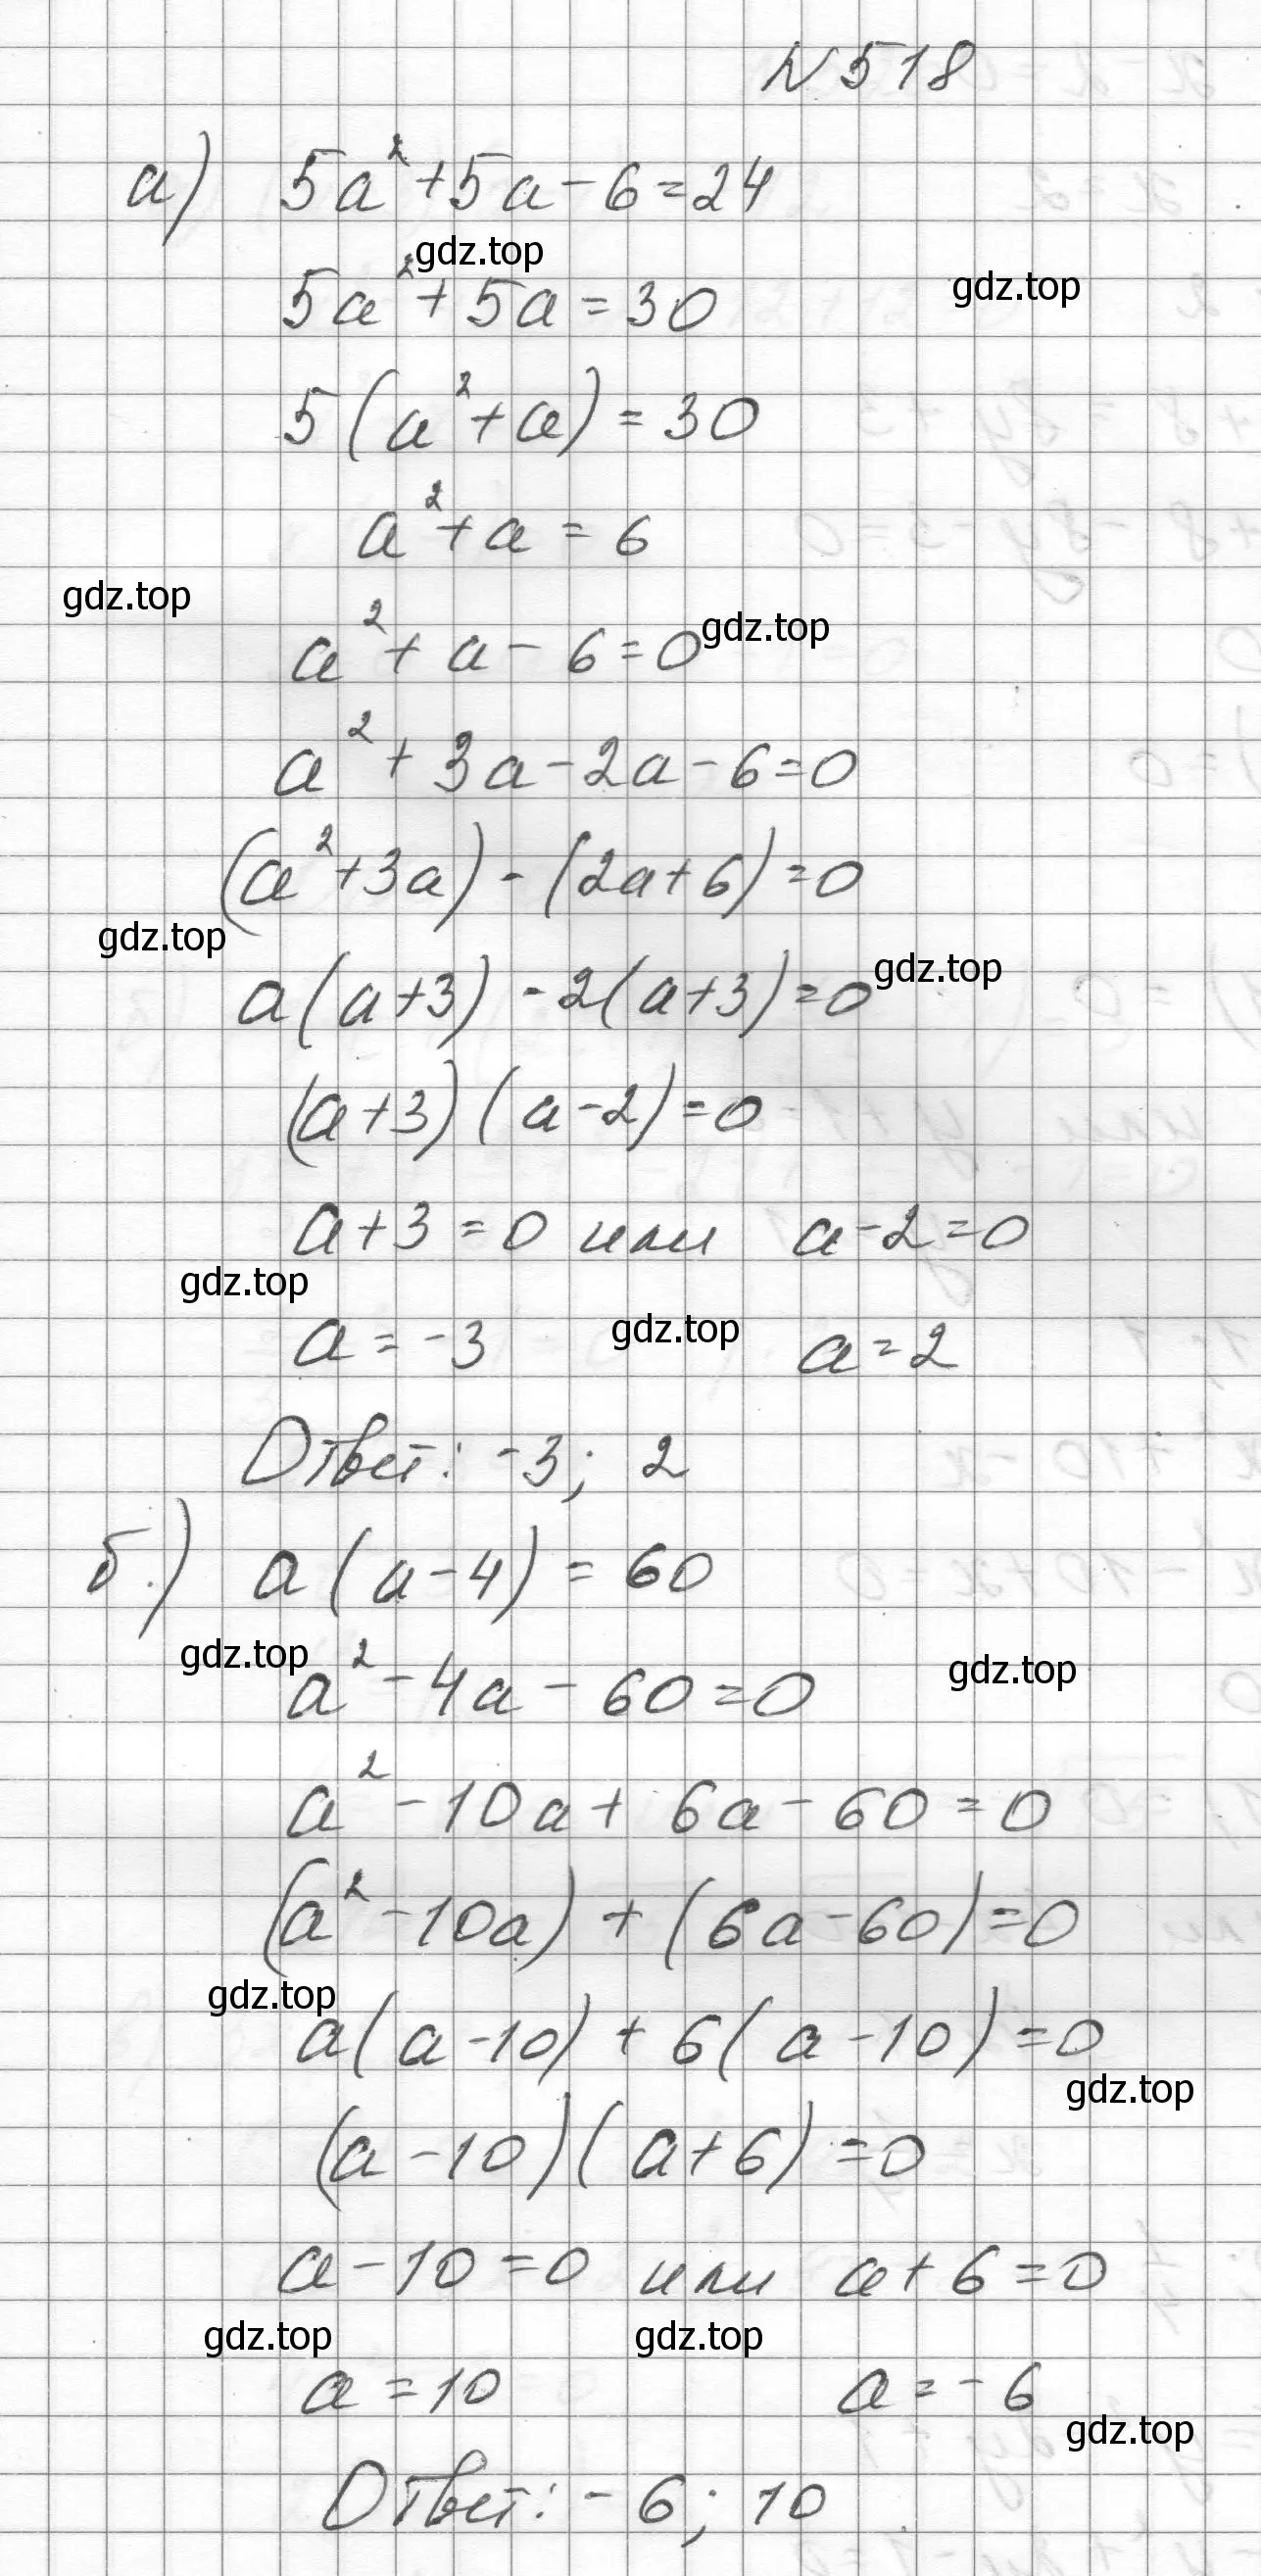 N 518
а) 5a² + 5a - 6 = 24
gdz.top
5a² + 5a = 30 gdz.top
5(a² + a) = 30
a² + a = 6
gdz.top
a² + a - 6 = 0 gdz.top
a² + 3a - 2a - 6 = 0
(a² + 3a) - (2a + 6) = 0
gdz.top
a(a + 3) - 2(a + 3) = 0 gdz.top
(a + 3)(a - 2) = 0
a + 3 = 0 или a - 2 = 0
gdz.top
a = -3 gdz.top a = 2
Ответ: -3; 2
б.) a(a - 4) = 60
gdz.top gdz.top
a² - 4a - 60 = 0
a² - 10a + 6a - 60 = 0
(a² - 10a) + (6a - 60) = 0
gdz.top
a(a - 10) + 6(a - 10) = 0
gdz.top
(a - 10)(a + 6) = 0
a - 10 = 0 или a + 6 = 0
gdz.top gdz.top
a = 10 a = -6
gdz.top
Ответ: -6; 10